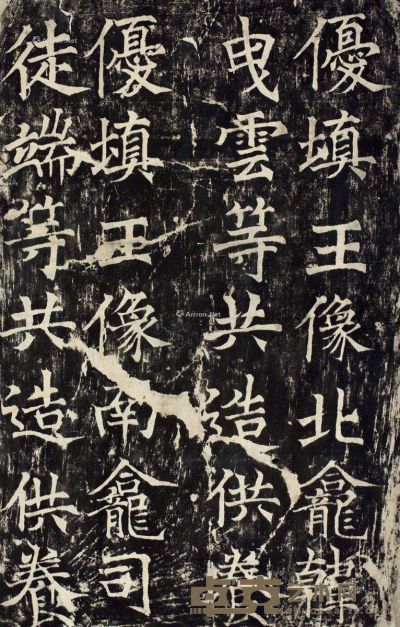 優填王像北龕韓
曳雲等共造供養
優填王像南龕司
徒端等共造供養
Artron.Net